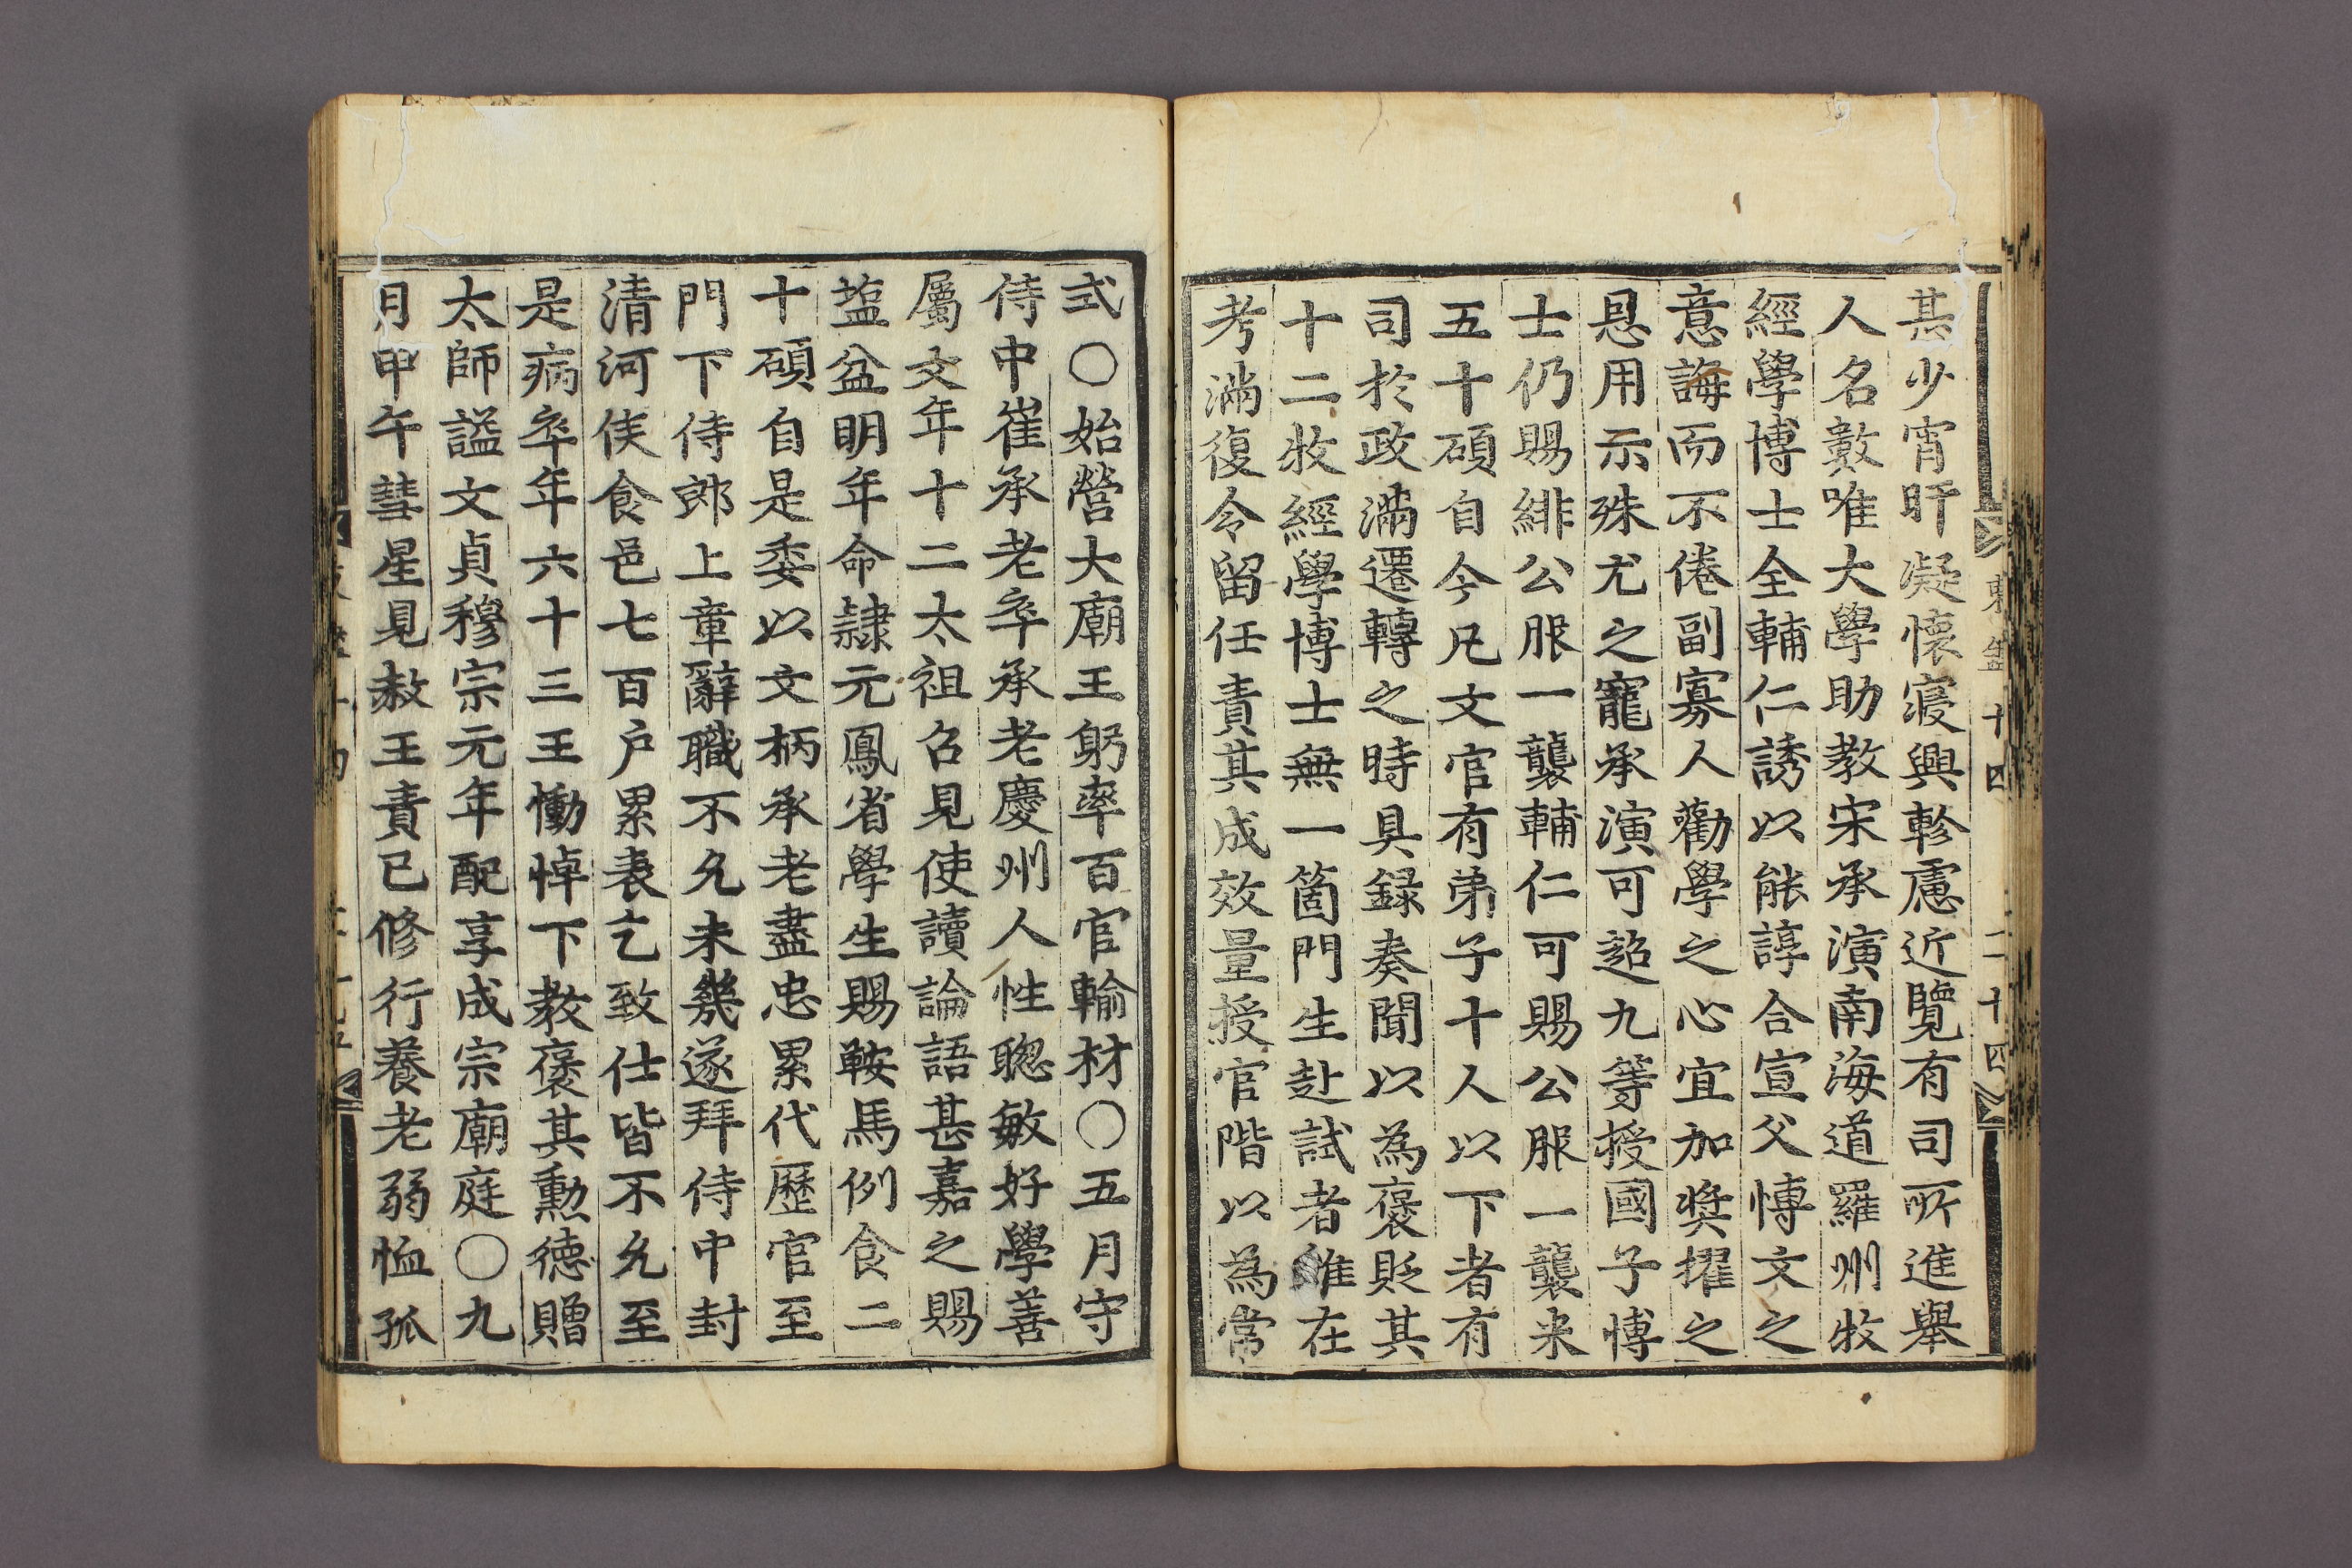 甚少宵旰凝懷寢興軫慮近覽有司所進舉
人名數唯大學助教宋承演南海道羅州牧
經學博士全輔仁誘以能諄合宣父博文之
意誨而不倦副寡人勸學之心宜加奬擢之
恩用示殊尤之寵承演可超九等授國子博
士仍賜緋公服一襲輔仁可賜公服一襲米
五十碩自今凡文官有弟子十人以下者有
司於政滿遷轉之時具録奏聞以為褒貶其
十二牧經學博士無一箇門生赴試者雖在
考滿復令留任責其成效量授官階以為常
東鑑十四 二十四
式○始營大廟王躬率百官輸材○五月守
侍中崔承老卒承老慶州人性聰敏好學善
屬文年十二太祖召見使讀論語甚嘉之賜
塩盆明年命隷元鳳省學生賜鞍馬例食二
十碩自是委以文柄承老盡忠累代歷官至
門下侍郎上章辭職不允未幾遂拜侍中封
清河侯食邑七百户累表乞致仕皆不允至
是病卒年六十三王慟悼下教褒其勲德贈
太師諡文貞穆宗元年配享成宗廟庭○九
月甲午彗星見赦王責已修行養老弱恤孤